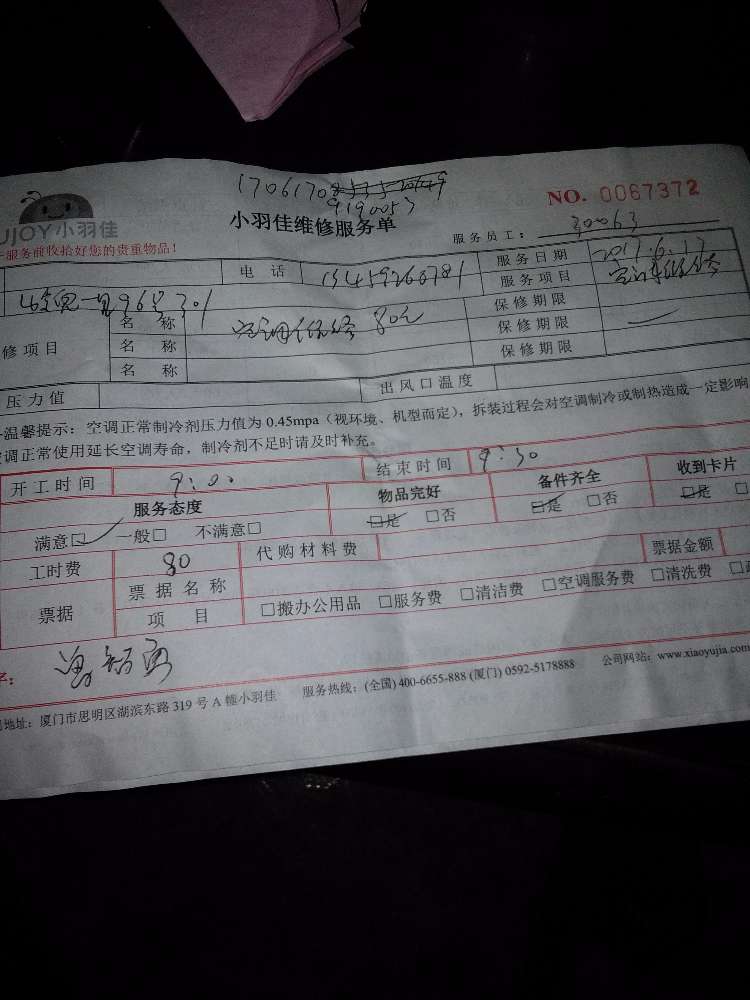 1706170
9190053
NO. 0067372
UJOY小羽佳
小羽佳维修服务单
服务员工： 30063
服务前收拾好您的贵重物品！
电 话 13459260781 服务日期 2017.6.17
服务项目
96号301
名 称 80元 保修期限
修项目 名 称 保修期限
名 称 保修期限
压力值 出风口温度
温馨提示：空调正常制冷剂压力值为 0.45mpa（视环境、机型而定），拆装过程会对空调制冷或制热造成一定影响
调正常使用延长空调寿命，制冷剂不足时请及时补充。
开工时间 9:00 结束时间 9:30
服务态度 物品完好 备件齐全 收到卡片
满意□ 一般□ 不满意□ □是 □否 □是 □否 □是 □
工时费 80 代购材料费 票据金额
票据 票据名称
项 目 □搬办公用品 □服务费 □清洁费 □空调服务费 □清洗费 □
字：
地址：厦门市思明区湖滨东路 319 号 A 幢小羽佳 服务热线：(全国) 400-6655-888 (厦门) 0592-5178888 公司网站：www.xiaoyujia.com